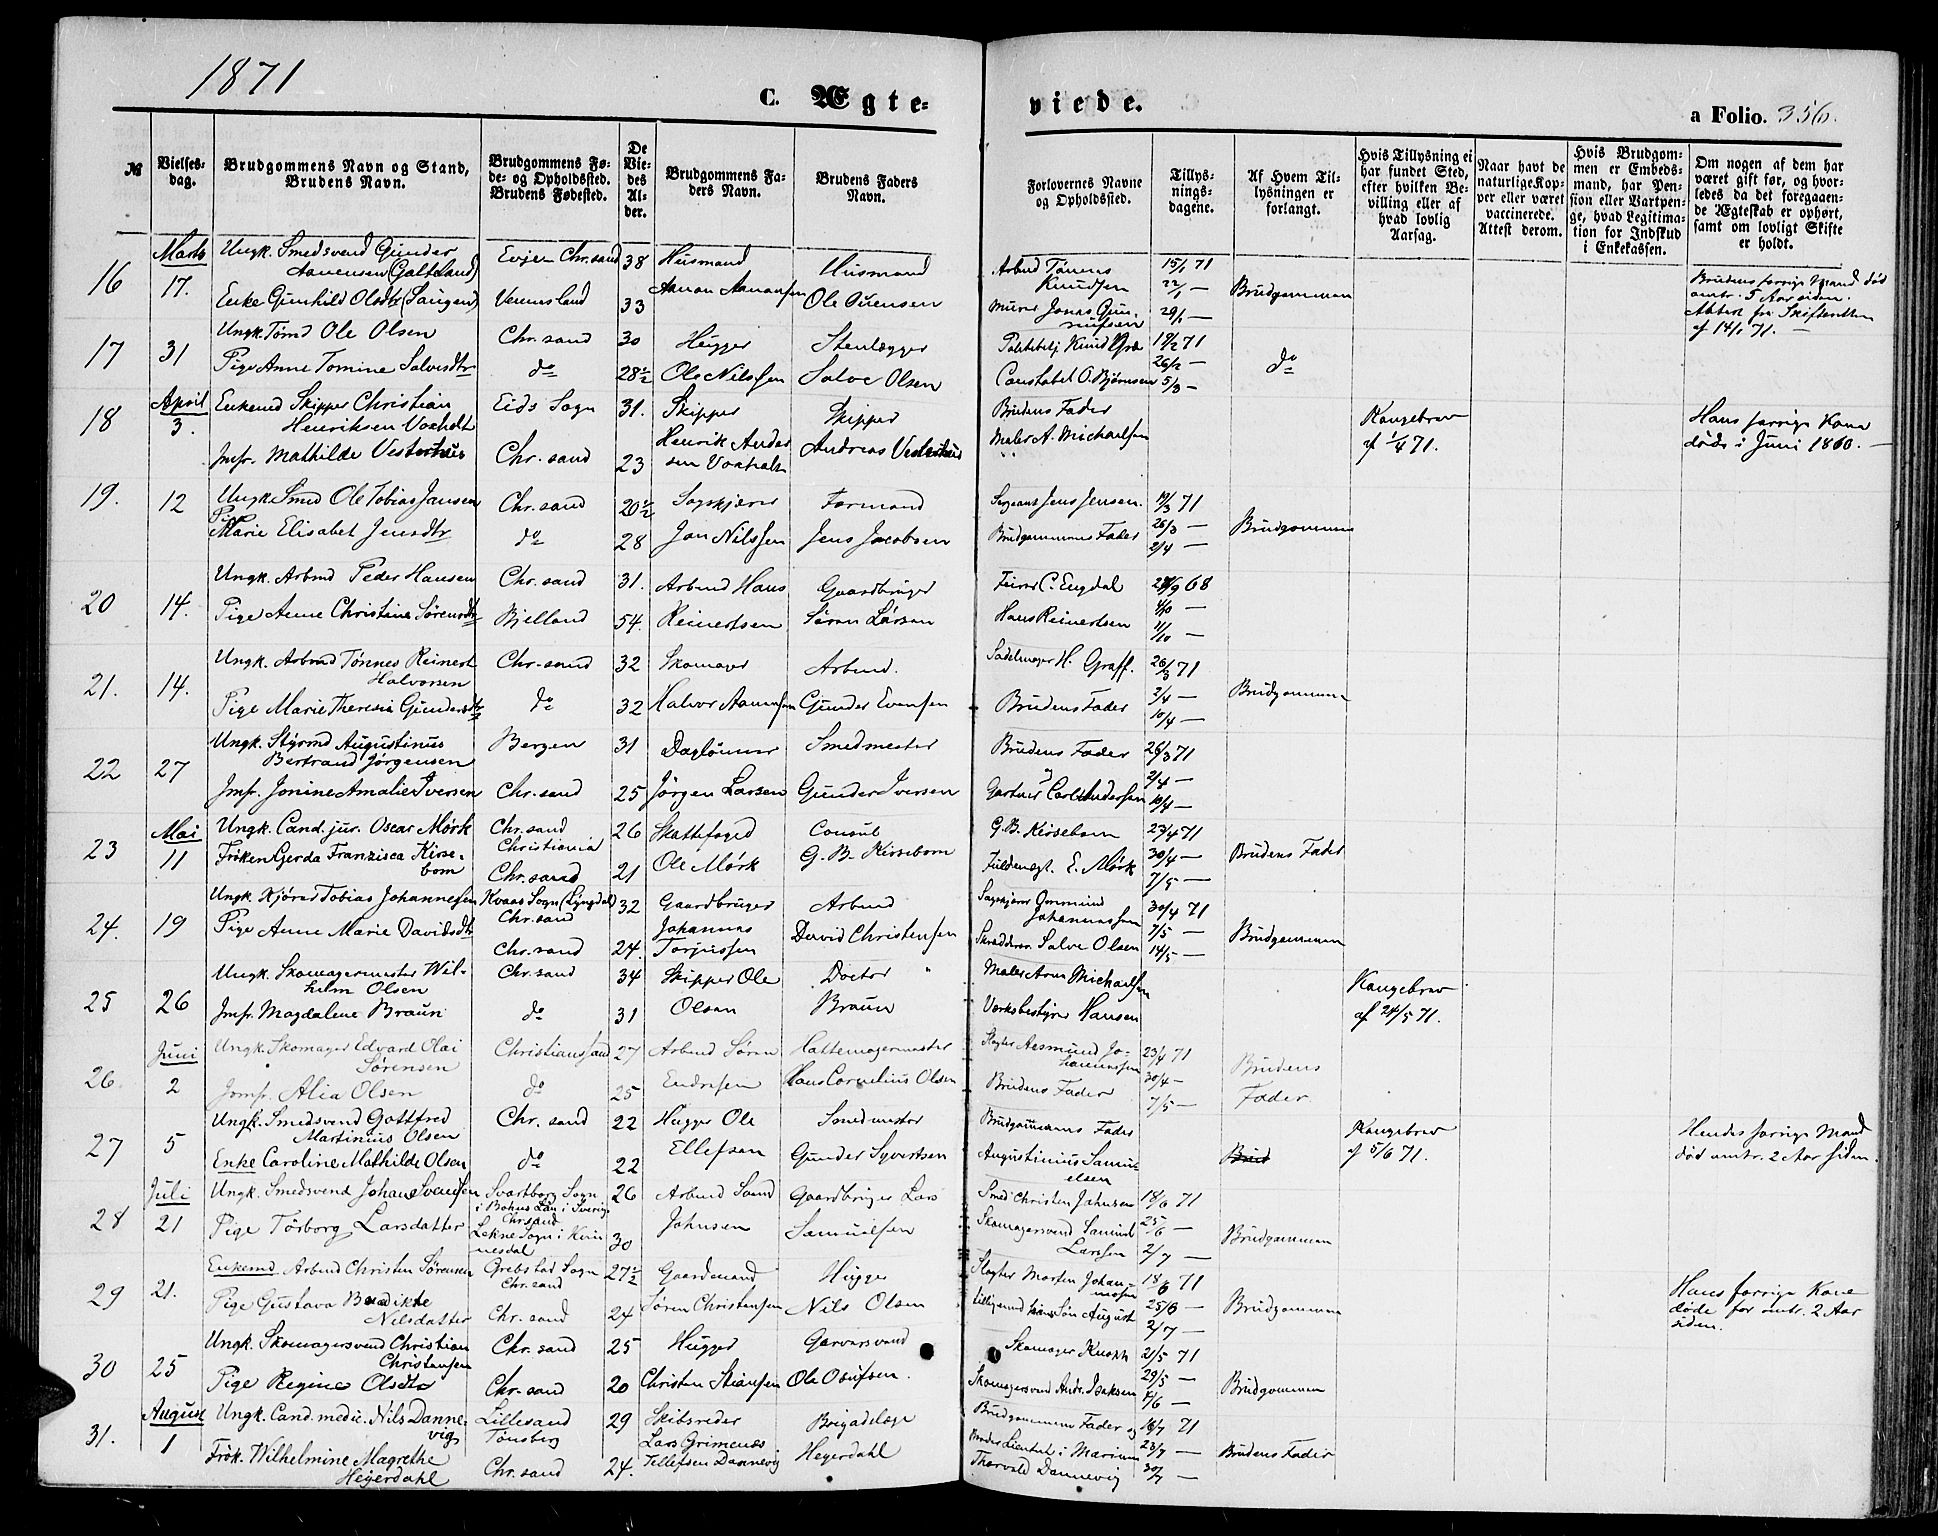 1871
C. Ægte-
viede.
a Folio. 356.
№
Vielses-
dag.
Brudgommens Navn og Stand,
Brudens Navn.
Brudgommens Fø-
de- og Opholdssted.
Brudens Fødested.
De
Vie-
des
Al-
der.
Brudgommens Fa-
ders Navn.
Brudens Faders
Navn.
Forlovernes Navne
og Opholdssted.
Tillys-
nings-
dagene.
Af Hvem Til-
lysningen er
forlangt.
Hvis Tillysning ei
har fundet Sted,
efter hvilken Be-
villing eller af
hvad lovlig
Aarsag.
Naar havt de
naturlige Kop-
per eller været
vaccinerede.
Attest derom.
Hvis Brudgom-
men er Embeds-
mand, har Pen-
sion eller Vartpen-
ge, hvad Legitima-
tion for Indskud
i Enkekassen.
Om nogen af dem har
været gift før, og hvor-
ledes da det foregaaen-
de Ægteskab er ophørt,
samt om lovligt Skifte
er holdt.
16 Marts 17.
Ungk. Smedsvend Gunder
Aanensen (Galteland)
Enke Gunhild Olsdtr (Saugen)
Evjen Chr.sand 38
Vennesland 33
Husmand
Aanon Aanonsen
Husmand
Ole Ousensen
Arbmd Tønnes
Knudsen
Murer Jonas Gun-
nufsen
15/1 71
22/1 —
29/1 —
Brudgommen
Brudens forrige Mand død
omtr. 5 Aar siden.
Attest fra Skifteretten
af 14/1 71. —
17 31
Ungk. Tømd Ole Olsen
Pige Anne Tomine Salvesdtr
Chr.sand 30
do 28½
Hugger
Ole Nilssen
Stenlægger
Salve Olsen
Politibetj Knud Græ
Constabel O. Bjørnsen
19/2 71
26/2 —
5/3 —
do
18 April 3.
Enkemd Skipper Christian
Henriksen Voxholt
Jmfr. Mathilde Vesterhus
Eids Sogn 31.
Chr.sand 23
Skipper
Henrik Ander
sen Voxholt
Skipper
Andreas Vesterhus
Brudens Fader
Maler A. Michaelsen
Kongebrev
af 1/4 71.
Hans forrige Kone
døde i Juni 1860. —
19. 12
Ungk. Smed Ole Tobias Jansen
Pige
Marie Elisabet Jensdtr
Chr.sand 20½
do 28
Sagskjærer
Jan Nilssen
Formand
Jens Jacobsen
Sergeant Jens Jensen.
Brudgommens Fader
19/3 71
26/3 —
2/4 —
Brudgommen
20 14.
Ungk. Arbmd Peder Hansen
Pige Anne Christine Sørensdtr
Chr.sand 31.
Bjelland 54.
Arbmd Hans
Reinertsen
Gaardbruger
Søren Larsen
Feirer C. Engdal
Hans Reinertsen
27/9 68
4/10 —
11/10 —
21. 14.
Ungk. Arbmd Tønnes Reinert
Halvorsen
Pige Marie Theresia Gundersdtr
Chr.sand 32
do 32
Skomager
Halvor Aanensen
Arbmd.
Gunder Evensen
Sadelmager H. Graff.
Brudens Fader
26/3 71
2/4 —
10/4 —
Brudgommen
22 27
Ungk. Styrmd Augustinus
Bertrand Jørgensen
Jmfr. Jonine Amalie Iversen
Bergen 31
Chr.sand 25
Dagløinner
Jørgen Larsen
Smedmester
Gunder Iversen
Brudens Fader
og
Gartner Carl Andersen
26/3 71
2/4 —
10/4 —
23 Mai 11
Ungk. Cand. jur. Oscar Mørk
Frøken Gerda Franzisca Kirse-
bom
Chr.sand 26
Christiania
Chr.sand 21
Skattefoged
Ole Mørk
Consul
G. B. Kirsebom
G. B. Kirsebom
Fuldmægt. E. Mørk
23/4 71
30/4 —
7/5 —
Brudens Fader
24. 19
Ungk. Kjøred Tobias Johannesen
Pige Anne Marie Davidsdtr
Kvaas Sogn (Lyngdal) 32
Chr.sand
Chr.sand 24.
Gaardbruger
Johannes
Torjussen
Arbmd
David Christensen
Sagskjærer Ommund
Johannessen
Skrædder Salve Olsen
30/4 71
7/5 —
14/5 —
Brudgommen
25 26
Ungk. Skomagermester Wil-
helm Olsen
Jmfr. Magdalene Braun
Chr.sand 34
do 31
Skipper Ole
Olsen
Doctor
Braun
Maler Aron Michaelsen
Værksbestyrer Hansen
Kongebrev
af 24/5 71.
26. Juni 2
Ungk. Skomager Edvard Olai
Sørensen
Jomfr. Alia Olsen
Christianssand 27
do 25
Arbmd Søren
Endresen
Hattemagermester
Hans Cornelius Olsen
Slagter Aasmund Jo-
hannessen
Brudens Fader
23/4 71
30/4 —
7/5 —
Brudens
Fader
27 5
Ungk. Smedsvend Gottfred
Martinius Olsen
Enke Caroline Mathilde Olsen
Chr.sand 22
do 22
Hugger Ole
Ellefsen
Smedmester
Gunder Syvertsen
Brudgommens Fader
Augustinius Samu-
elsen
Brud
Kongebrev
af 5/6 71.
Hendes forrige Mand
død omtr. 2 Aar siden.
28 Juli 21
Ungk. Smedsvend Johan Svensen
Pige Torborg Larsdatter
Svartborg Sogn 26
i Bohus Län i Sverige
Chr.sand
Lekne Sogn i Kvin
nesdal 30
Arbmd Svend
Johnsen
Gaardbruger Lars
Samuelsen
Smed Christen Jahnsen
Skomagersvend Samuel
Larssen
18/6 71
25/6 —
2/7 —
Brudgommen
29 21.
Enkemd Arbmd Christen Sørensen
Pige Gustava Benedikte
Nilsdatter
Grebstad Sogn 27½
Chr.sand
Chr.sand 24
Gaardmand
Søren Christensen
Hugger
Nils Olsen
Slagter Morten Johan-
nessen
Søn August
18/6 71
25/6 —
2/7 —
Brudgommen
Hans forrige Kone
døde for omtr. 2 Aar
siden.
30 25
Ungk. Skomagersvend Christian
Christensen
Pige Regine Olsdtr
Chr.sand 25
Chr.sand 20
Hugger
Christen Stiansen
Garversvend
Ole Osufsen.
Skomager Knoph
Skomagersvend Andr. Isaksen
21/5 71
29/5 —
4/6 —
Brudgommen
31. August 1
Ungk. Cand. medic. Nils Danne-
vig
Frøk. Wilhelmine Magrethe
Heyerdahl
Lillesand 29
Tønsberg
Chr.sand 24.
Skibsreder
Lars Grimenæs
Tellefsen Dannevig
Brigadelæge
Heyerdahl
Brudgommens Fader og
Premier Lieutnt i Marinen
Thorvald Dannevig
16/7 71
23/7 —
30/7 —
Brudens Fader